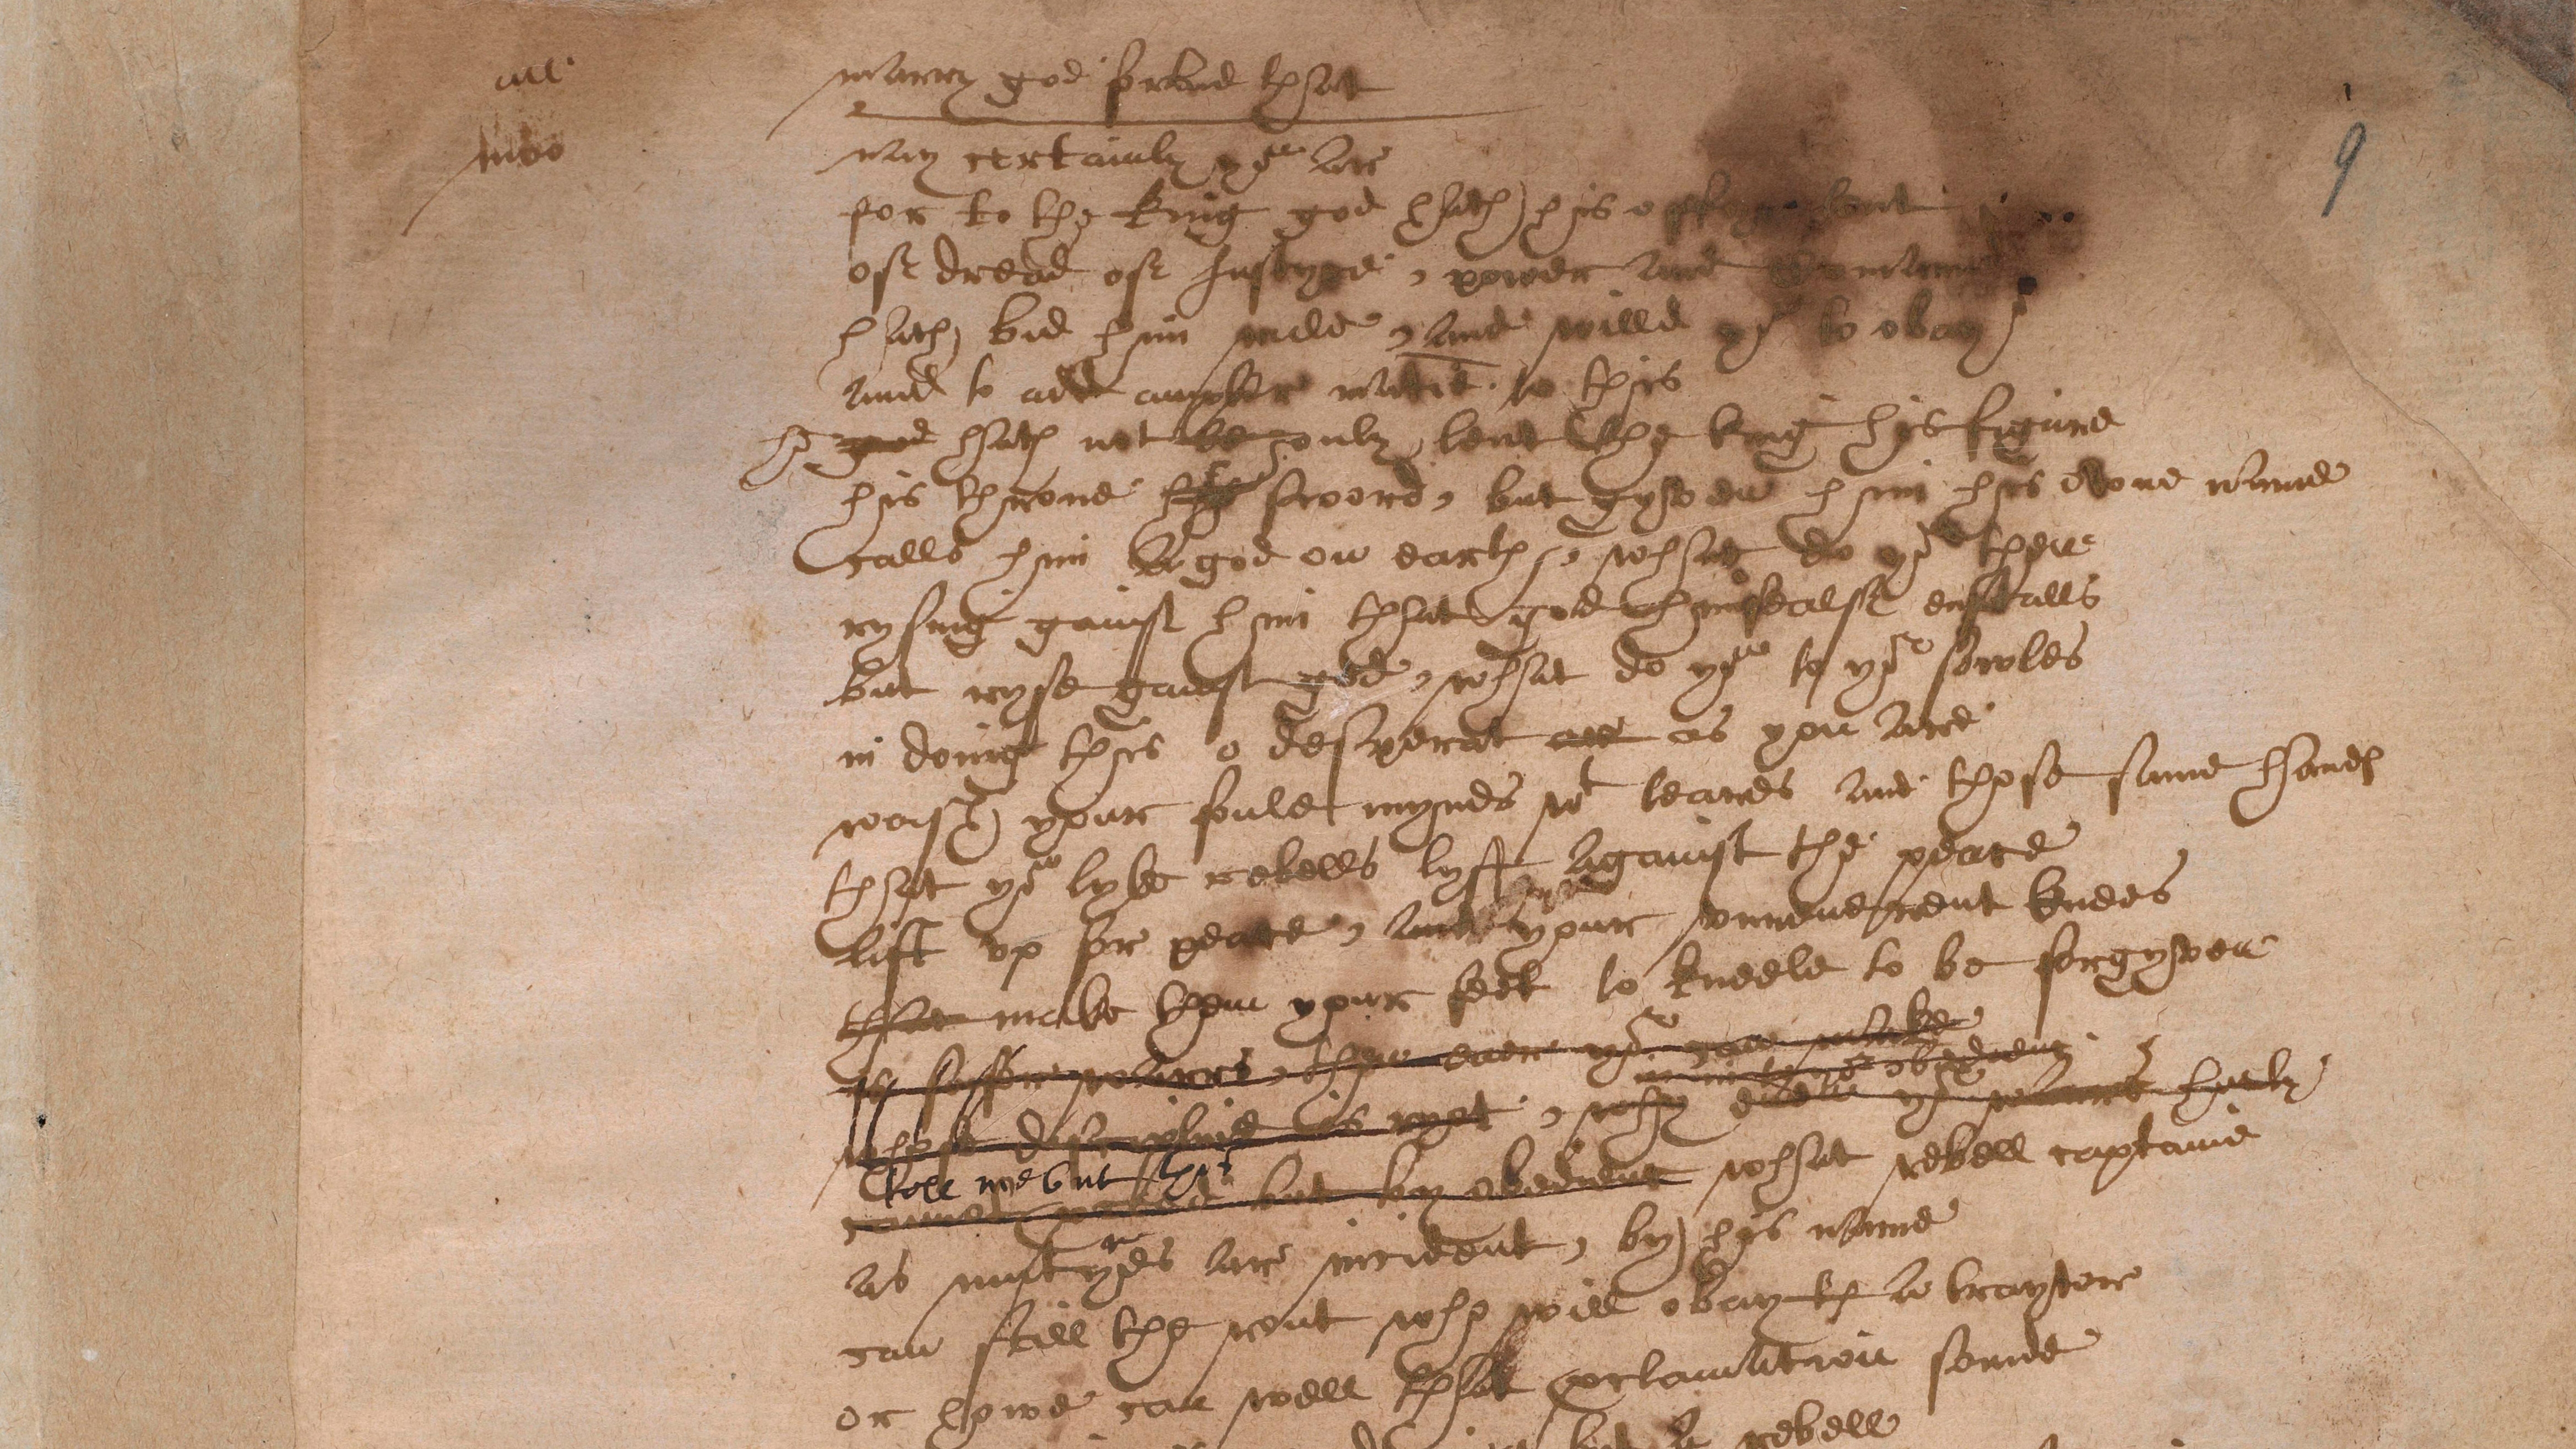 all marry god forbid that
moo nay certainly yoᵘ ar
9
for to the king god hath his offyce lent
of dread of Iustyce, power and Comaund
hath bid him rule, and willd yoᵘ to obay
and to add ampler matie. to this
he god hath not le only lent the king his figure
his throne his sword, but gyven him his owne name
calls him a god on earth, what do yoᵘ then
rysing gainst him that god himsealf enstalls
but ryse gainst god, what do yoᵘ to yoʳ sowles
in doing this o desperat ar as you are
wash your foule mynds wᵗ teares and those same handes
that yoᵘ lyke rebells lyft against the peace
lift vp for peace, and your vnreuerent knees
that make them your feet to kneele to be forgyven
is safer warrs, then euer yoᵘ can make
in in to yoʳ obedienc.
whose discipline is ryot, why euen yoʳ warrs hurly
tell me but this
cannot proceed but by obedienc what rebell captaine
as mutynes ar incident, by his name
can still the rout who will obay th a traytor
or howe can well that proclamation sounde
but a rebell